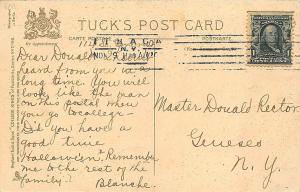 TUCK'S POST CARD
CARTE POSTALE
POSTKARTE
ITHACA
N.Y.
NOV 9
Dear Donald
heard from you in a
long time. You will
look like the man
on this postal when
you go to college-
Did you have a
good time
Hallowe'en? Remember
me to the rest of the
family.
Blanche.
Master Donald Rector
Geneseo
N. Y.